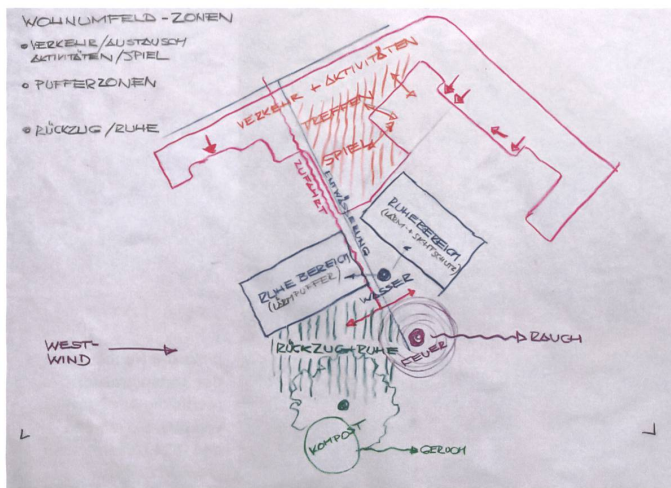 WOHNUMFELD - ZONEN
• VERKEHR/AUSTAUSCH
AKTIVITÄTEN/SPIEL
• PUFFERZONEN
• RÜCKZUG/RUHE
VERKEHR + AKTIVITÄTEN
TREFFEN
SPIEL
ZUFAHRT
ENTWÄSSERUNG
RUHEBEREICH
(LÄRM- + SICHTSCHUTZ)
RUHE BEREICH
(LÄRMPUFFER)
WASSER
WEST-
WIND
RÜCKZUG + RUHE
FEUER
RAUCH
KOMPOST
GERUCH